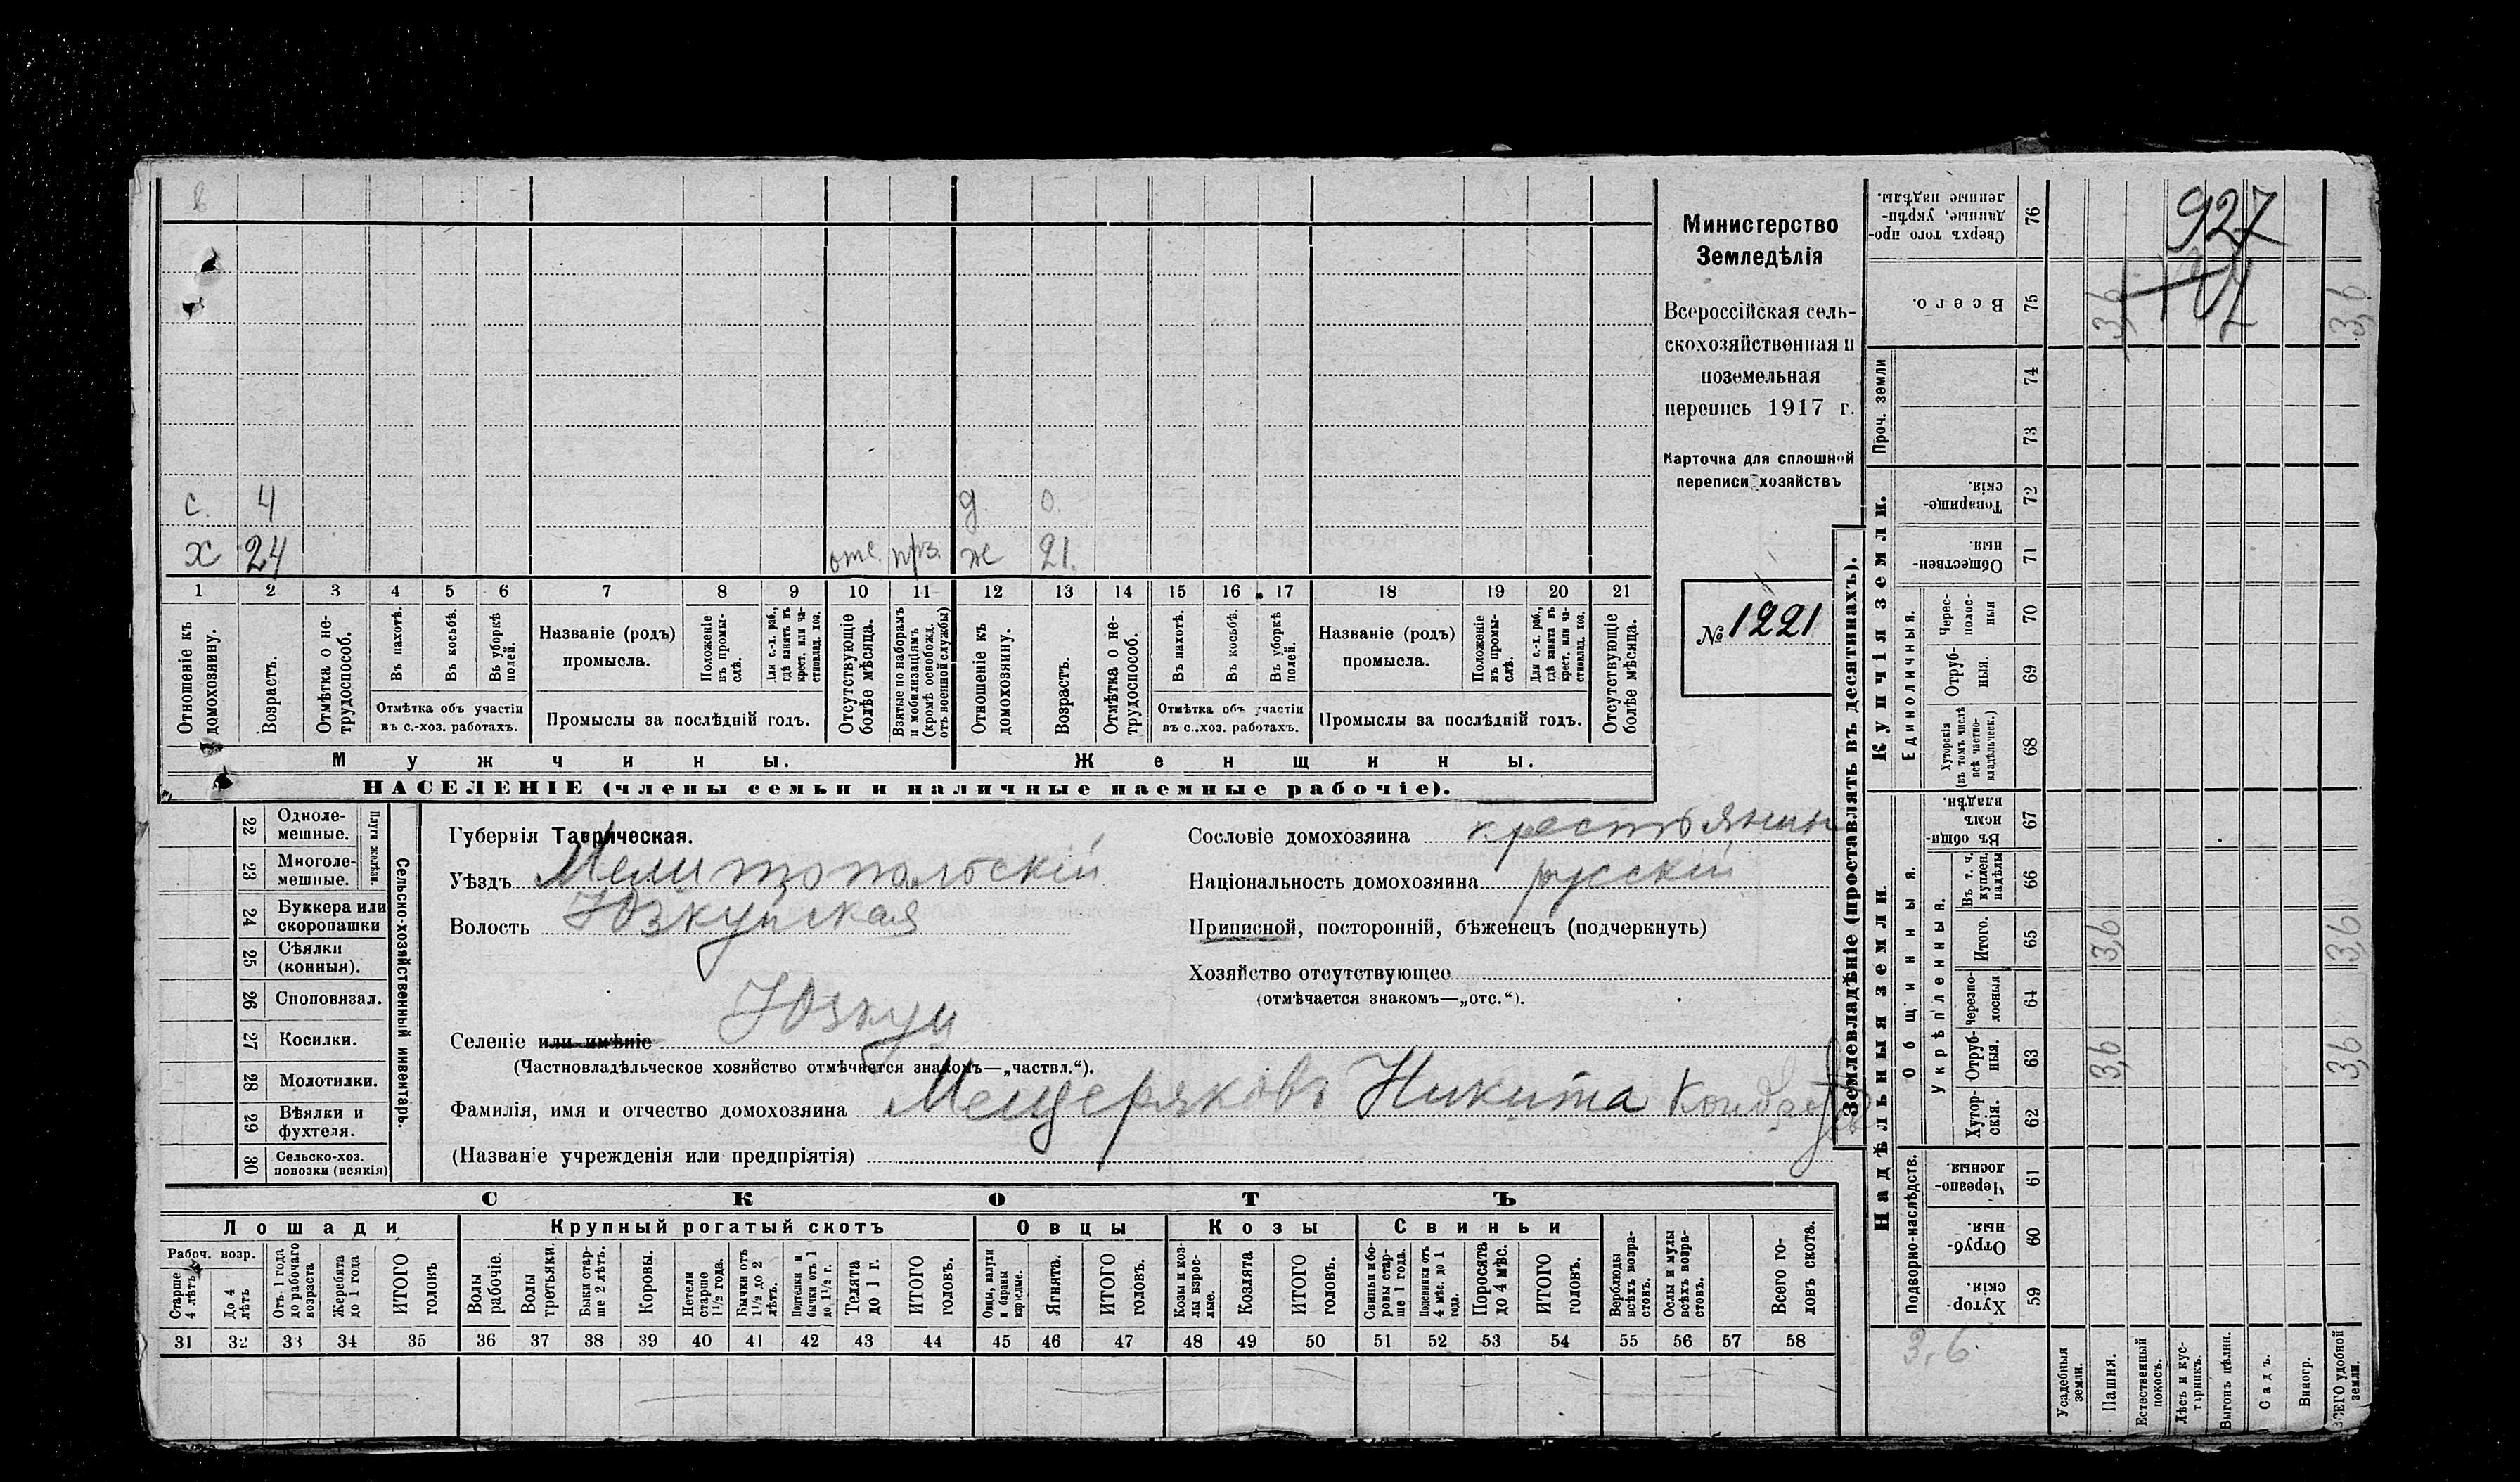 в
с. 4 д. о.
х 24 отс. прз. ж 21.
1 2 3 4 5 6 7 8 9 10 11 12 13 14 15 16 17 18 19 20 21
Отношеніе къ домохозяину.
Возрастъ.
Отмѣтка о не-трудоспособ.
Въ пахотѣ.
Въ косьбѣ.
Въ уборкѣ полей.
Отмѣтка объ участіи
въ с.-хоз. работахъ.
Названіе (родъ)
промысла.
Положеніе въ промы-слѣ.
Для с.-х. раб., гдѣ занятъ въ крест. или ча-стновлад. хоз.
Промыслы за послѣдній годъ.
Отсутствующіе болѣе мѣсяца.
Взятые по наборамъ и мобилизаціямъ (кромѣ освобожд. отъ военной службы)
Отношеніе къ домохозяину.
Возрастъ.
Отмѣтка о не-трудоспособ.
Въ пахотѣ.
Въ косьбѣ.
Въ уборкѣ полей.
Отмѣтка объ участіи
въ с.-хоз. работахъ.
Названіе (родъ)
промысла.
Положеніе въ промы-слѣ.
Для с.-х. раб., гдѣ занята въ крест. или ча-стновлад. хоз.
Промыслы за послѣдній годъ.
Отсутствующіе болѣе мѣсяца.
Мужчины. Женщины.
НАСЕЛЕНІЕ (члены семьи и наличные наемные рабочіе).
Министерство
Земледѣлія
Всероссійская сель-
скохозяйственная и
поземельная
перепись 1917 г.
Карточка для сплошной
переписи хозяйствъ
№ 1221
22 Одноле-мешные.
23 Многоле-мешные.
Плуги желѣзн.
24 Буккера или скоропашки
25 Сѣялки (конныя).
26 Сноповязал.
27 Косилки.
28 Молотилки.
29 Вѣялки и фухтеля.
30 Сельско-хоз. повозки (всякія)
Сельско-хозяйственный инвентарь.
Губернія Таврическая.
Уѣздъ Мелитопольскій
Волость Юзкуйская
Селеніе или имѣніе Юзкуи
(Частновладѣльческое хозяйство отмѣчается знакомъ—„частвл.“).
Фамилія, имя и отчество домохозяина Мещеряковъ Никита
(Названіе учрежденія или предпріятія)
Сословіе домохозяина крестьянин
Національность домохозяина русскій
Приписной, посторонній, бѣженецъ (подчеркнуть)
Хозяйство отсутствующее
(отмѣчается знакомъ—„отс.“).
СКОТЪ
Лошади Крупный рогатый скотъ Овцы Козы Свиньи
Рабоч. возр.
Старше 4 лѣтъ
До 4 лѣтъ
Отъ 1 года до рабочаго возраста
Жеребята до 1 года
ИТОГО головъ
Волы рабочіе.
Волы третьяки.
Быки стар-ше 2 лѣтъ.
Коровы.
Нетели старше 1½ года.
Бычки отъ 1½ до 2 лѣтъ.
Подтелки и бычки отъ 1 до 1½ г.
Телята до 1 г.
ИТОГО головъ.
Овцы, валухи и бараны взрослые.
Ягнята.
ИТОГО головъ.
Козы и коз-лы взрос-лые.
Козлята
ИТОГО головъ.
Свиньи и бо-ровы стар-ше 1 года.
Подсвинки отъ 4 мѣс. до 1 года.
Поросята до 4 мѣс.
ИТОГО головъ.
Верблюды всѣхъ возра-стовъ.
Ослы и мулы всѣхъ возра-стовъ.
Всего го-ловъ скота.
31 32 33 34 35 36 37 38 39 40 41 42 43 44 45 46 47 48 49 50 51 52 53 54 55 56 57 58
Землевладѣніе (проставлять въ десятинахъ).
927
Сверхъ того про-данные, укрѣп-ленные надѣлы. 76
Всего. 75 3,6 3,6
Проч. земли
74
73
Купчія земли.
Товарище-скія. 72
Обществен-ныя. 71
Единоличныя.
Черес-полос-ныя 70
Отруб-ныя. 69
Хуторскія (въ томъ числѣ всѣ частно-владѣльческ.) 68
Надѣльныя земли.
Общинныя.
Въ общин-номъ владѣн. 67
Укрѣпленныя.
Въ т. ч. куплен. надѣлы 66
Итого. 65 3,6 3,6
Черезпо-лосныя 64
Отруб-ныя. 63 3,6 3,6
Хутор-скія. 62
Подворно-наслѣдств.
Черезпо-лосныя. 61
Отруб-ныя. 60
Хутор-скія 59
3,6.
Усадебныя земли.
Пашня.
Естественный покосъ.
Лѣсъ и кус-тарникъ.
Выгонъ цѣлин.
Садъ.
Виногр.
ВСЕГО удобной земли.